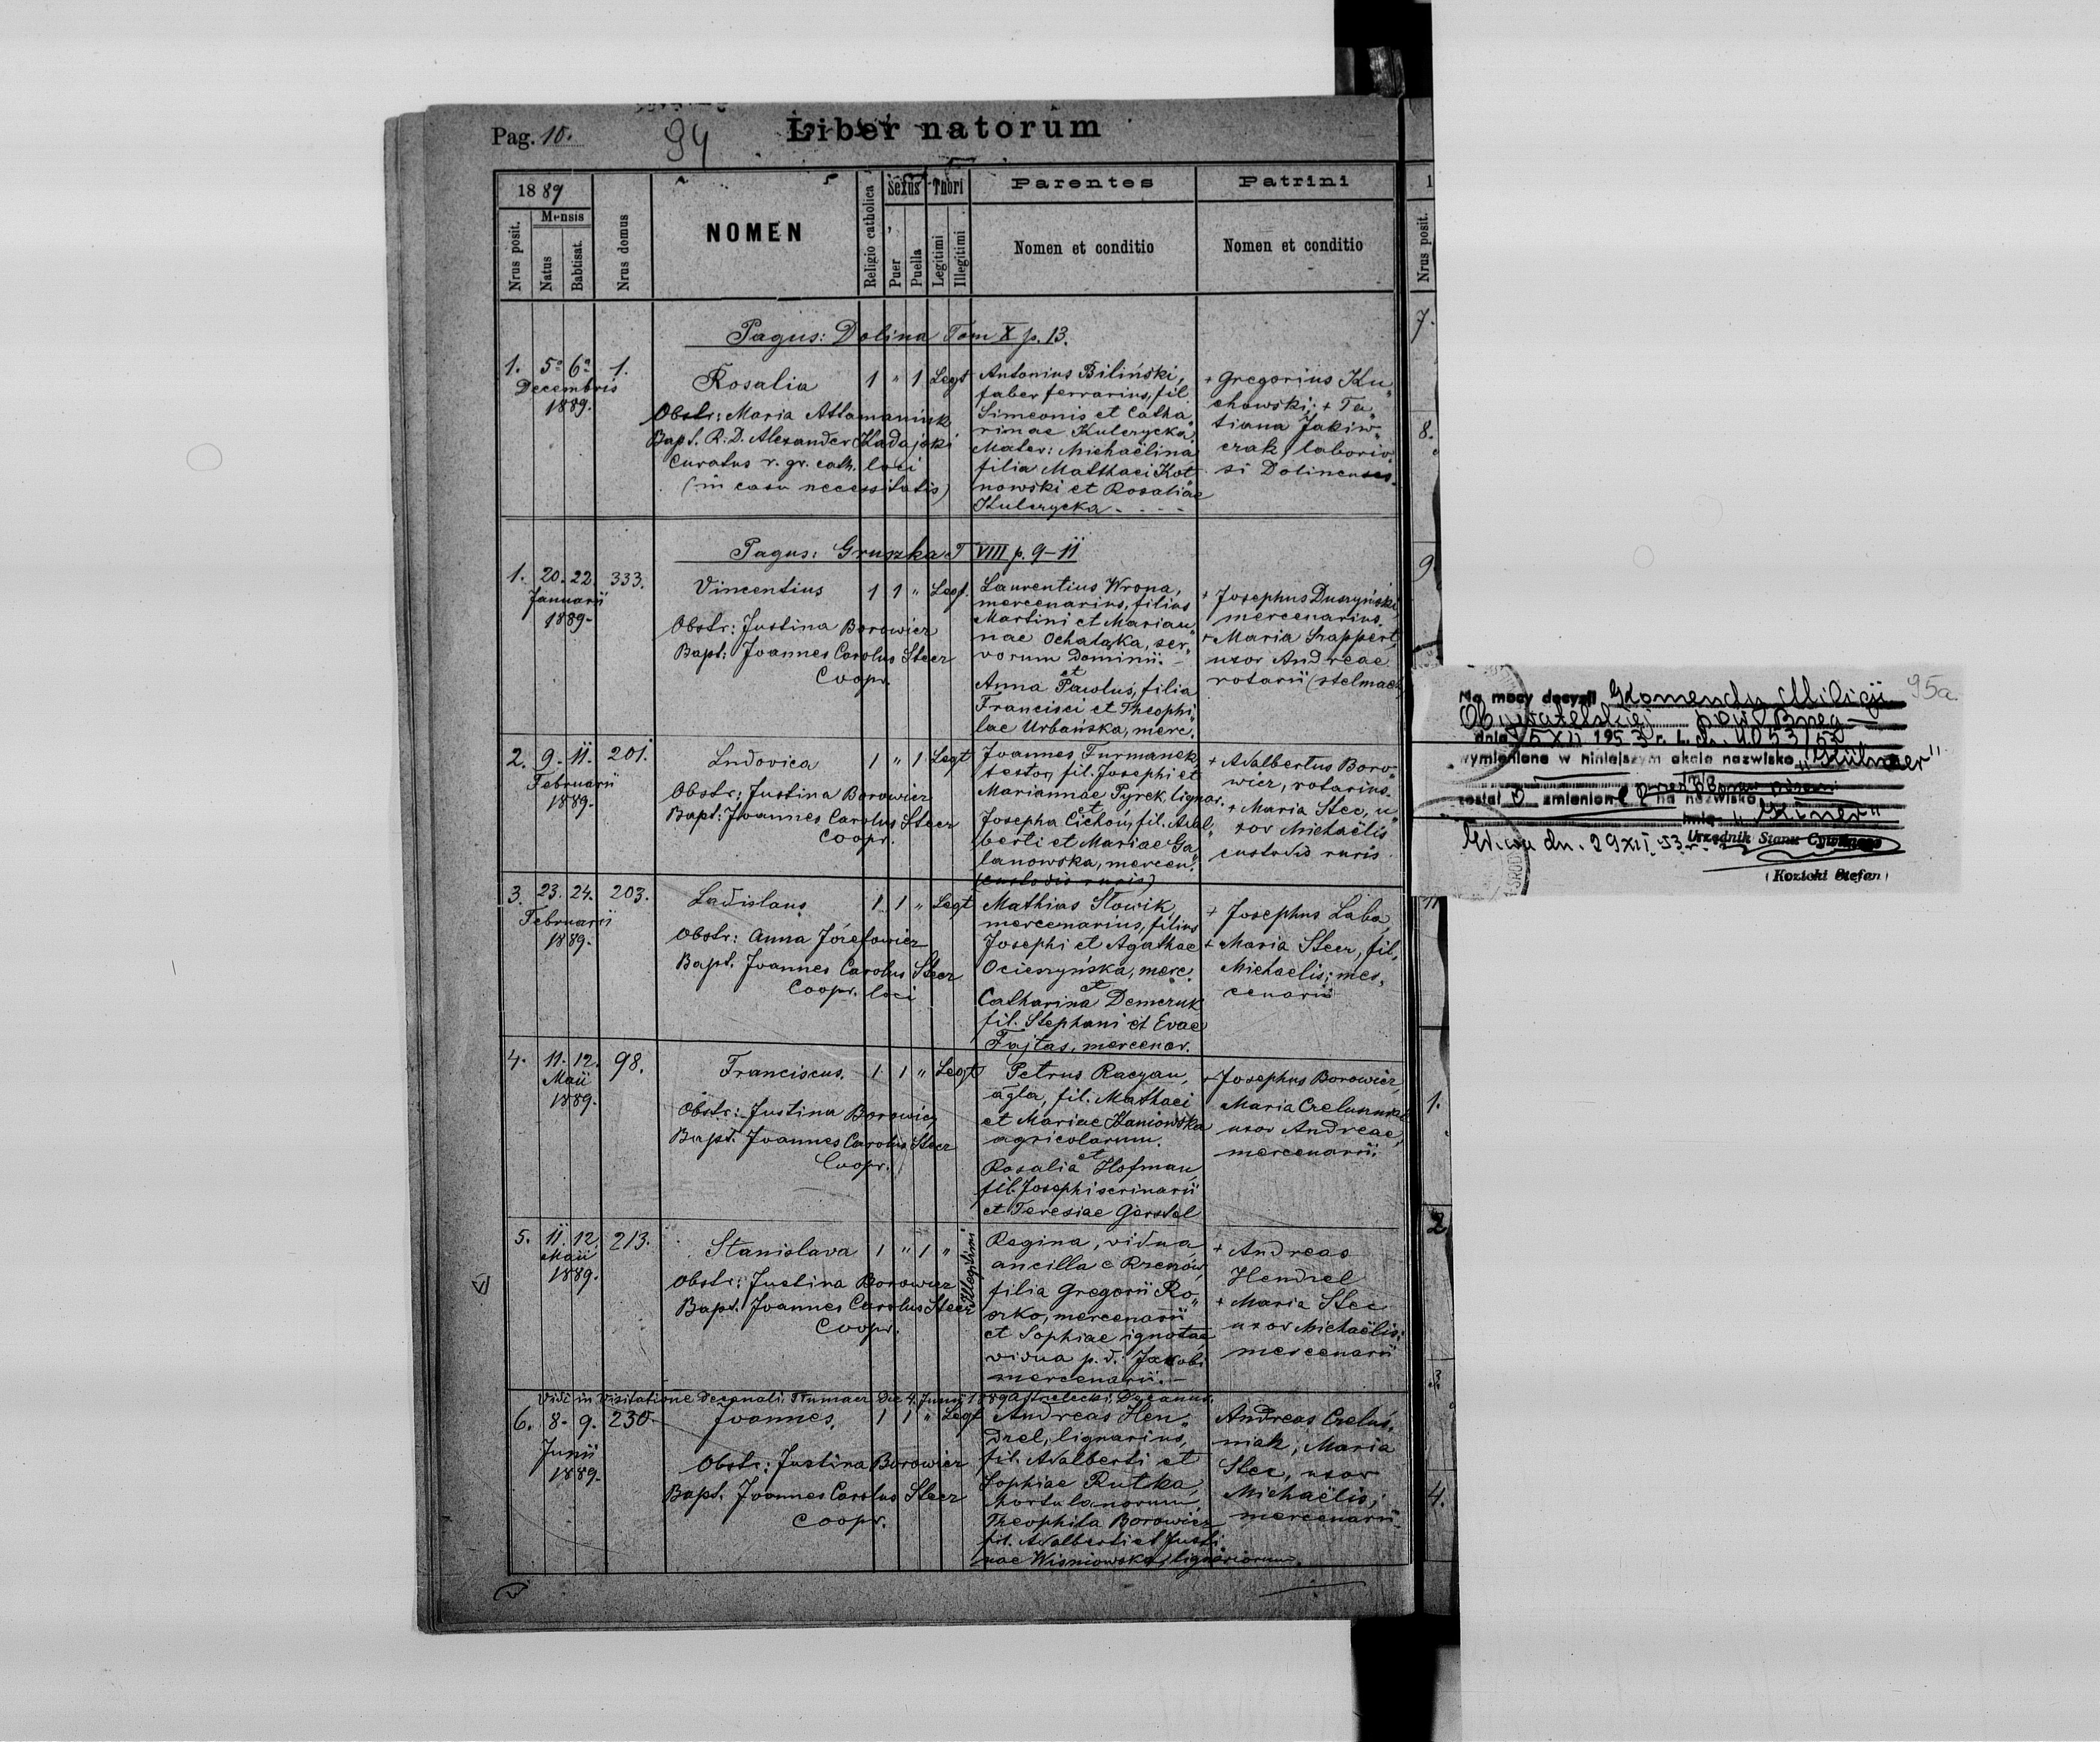 Pag. 10.
94
Liber natorum
1889
Nrus posit.
Mensis
Natus
Babtisat.
Nrus domus
NOMEN
Religio catholica
Sexus
Puer
Puella
Thori
Legitimi
Illegitimi
Parentes
Nomen et conditio
Patrini
Nomen et conditio
Pagus: Dolina Tom X p. 13.
1. 5a 6a 1.
Decembris
1889.
Rosalia
1 " 1 Legt
Obstr: Maria Attamaniuk
Bapt. R. D. Alexander Hadajski
Curatus r. gr. cath. loci
(in casu necessitatis)
Antonius Biliński,
faber ferrarius, fil.
Simeonis et Catha„
rinae Kulczycka.
Mater: Michaëlina
filia Matthaei Kot„
nowski et Rosaliae
Kulczycka - - - -
+ Gregorius Ku„
chowski; + Ta„
tiana Jakiw„
czak, laborio„
si Dolinenses.
Pagus: Gruszka T VIII p. 9-11
1. 20. 22. 333.
Januarii
1889.
Vincentius
1 1 " Legt.
Obstr: Justina Borowicz
Bapt: Joannes Carolus Steer
Coopr.
Laurentius Wrona,
mercenarius, filius
Martini et Marian„
nae Ochałąka, ser„
vorum Dominii.
et
Anna Pawlus, filia
Francisci et Theophi„
lae Urbańska, merc.
+ Josephus Duszyński
mercenarius.
+ Maria Szappert,
uxor Andreae
rotarii (stelmach
2. 9. 11. 201.
Februarii
1889.
Ludovica
1 " 1 Legt
Obstr: Justina Borowicz
Bapt: Joannes Carolus Steer
Coopr.
Joannes Furmanek,
textor, fil. Josephi et
Mariannae Pyrek, lignar.
et
Josepha Cichoń, fil. Adal„
berti et Mariae Ga„
lanowska, mercen.
(custodis ruris)
+ Adalbertus Boro„
wicz, rotarius.
+ Maria Stec, u„
xor Michaëlis
custodis ruris
3. 23. 24. 203.
Februarii
1889.
Ladislaus
1 1 " Legt
Obstr: Anna Józefowicz
Bapt. Joannes Carolus Steer
Coopr. loci
Mathias Słowik,
mercenarius, filius
Josephi et Agathae
Ocieszyńska, merc.
et
Catharina Demczuk
fil. Stephani et Evae
Fajtas, mercenar.
+ Josephus Laba,
+ Maria Steer, fil.
Michaelis; mer„
cenarii
4. 11. 12. 98.
Maii
1889.
Franciscus.
1 1 " Legt
Obstr: Justina Borowicz
Bapt. Joannes Carolus Steer
Coopr.
Petrus Raczan,
agla, fil. Mathaei
et Mariae Kaniowska
agricolarum.
et
Rosalia Hofman,
fil. Josephi scrinarii
et Teresiae Gorstal
+ Josephus Borowicz,
Maria
uxor Andreae,
mercenarii.
5. 11. 12. 213.
Maii
1889.
Stanislava
1 " 1 " Illegitimi
Obstr: Justina Borowicz
Bapt. Joannes Carolus Steer
Coopr.
Regina, vidua,
ancilla e
filia Gregorii Ro„
szko, mercenarii
et Sophiae ignotae,
vidua p. d. Jakobi
mercenarii.
+ Andreas
Hendzel
+ Maria Stec
uxor Michaëlis:
mercenarii
Vidi in Visitatione Decanali. Tłumacz die 4. Junii 1889 Decanus.
6. 8. 9. 230.
Junii
1889.
Joannes.
1 1 " Legt
Obstr: Justina Borowicz
Bapt. Joannes Carolus Steer
Coopr.
Andreas Hen„
dzel, lignarius,
fil. Adalberti et
Sophiae Rutka,
hortulanorum.
Theophila Borowicz
fil. Adalberti et Justi
nae Wiśniowska, lignariorum.
Andreas Czeluś„
niak, Maria
Stec, uxor
Michaëlis;
mercenarii.
95a
Na mocy decyzji Komendy Milicji
Obywatelskiej
dnia 15 XII 1953 r. L. dz.
wymienione w niniejszym akcie nazwisko
został o zmienione na nazwisko
imię
dn. 29 XII 53 Urzędnik Stanu Cywilnego
(Kozicki Stefan)
1
Nrus posit.
7.
8.
9.
11
1.
2.
3.
4.